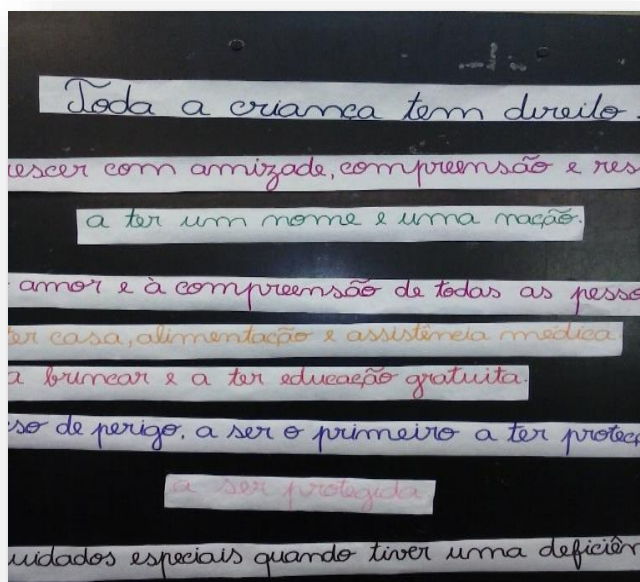 Toda a criança tem direito.
rescer com amizade, compreensão e res
a ter um nome e uma nação.
amor e à compreensão de todas as pesso
ter casa, alimentação e assistência médica
a brincar e a ter educação gratuita.
so de perigo, a ser o primeiro a ter proteç
a ser protegida
uidados especiais quando tiver uma deficiên